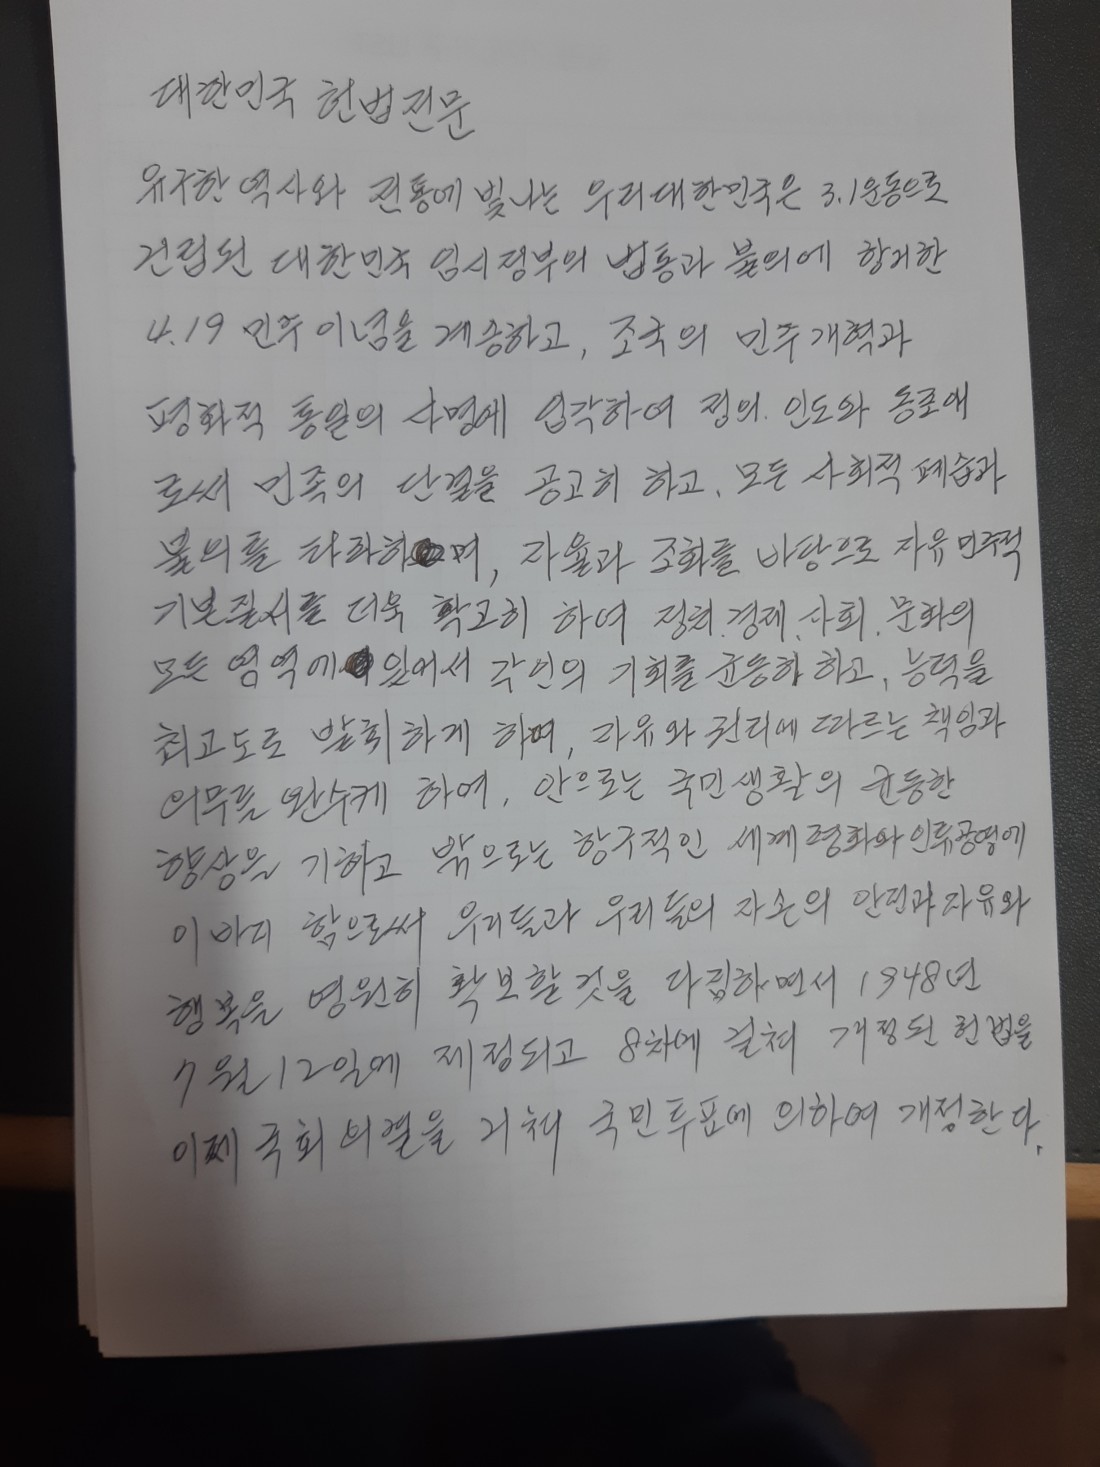 대한민국 헌법전문
유구한 역사와 전통에 빛나는 우리대한민국은 3.1운동으로
건립된 대한민국 임시정부의 법통과 불의에 항거한
4.19 민주이념을 계승하고, 조국의 민주개혁과
평화적 통일의 사명에 입각하여 정의. 인도와 동포애
로써 민족의 단결을 공고히 하고, 모든 사회적 폐습과
불의를 타파하며, 자율과 조화를 바탕으로 자유민주적
기본질서를 더욱 확고히 하여 정치.경제.사회.문화의
모든 영역에 있어서 각인의 기회를 균등히 하고, 능력을
최고도로 발휘하게 하며, 자유와 권리에 따르는 책임과
의무를 완수케 하여, 안으로는 국민생활의 균등한
향상을 기하고 밖으로는 항구적인 세계평화와 인류공영에
이바지 함으로써 우리들과 우리들의 자손의 안전과 자유와
행복을 영원히 확보할것을 다짐하면서 1948년
7월12일에 제정되고 8차에 걸쳐 개정된 헌법을
이제 국회의결을 거쳐 국민투표에 의하여 개정한다.